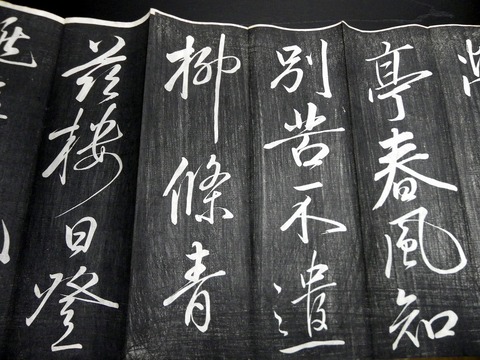 亭春風知
別苦不遣
柳條青
茲樓日登